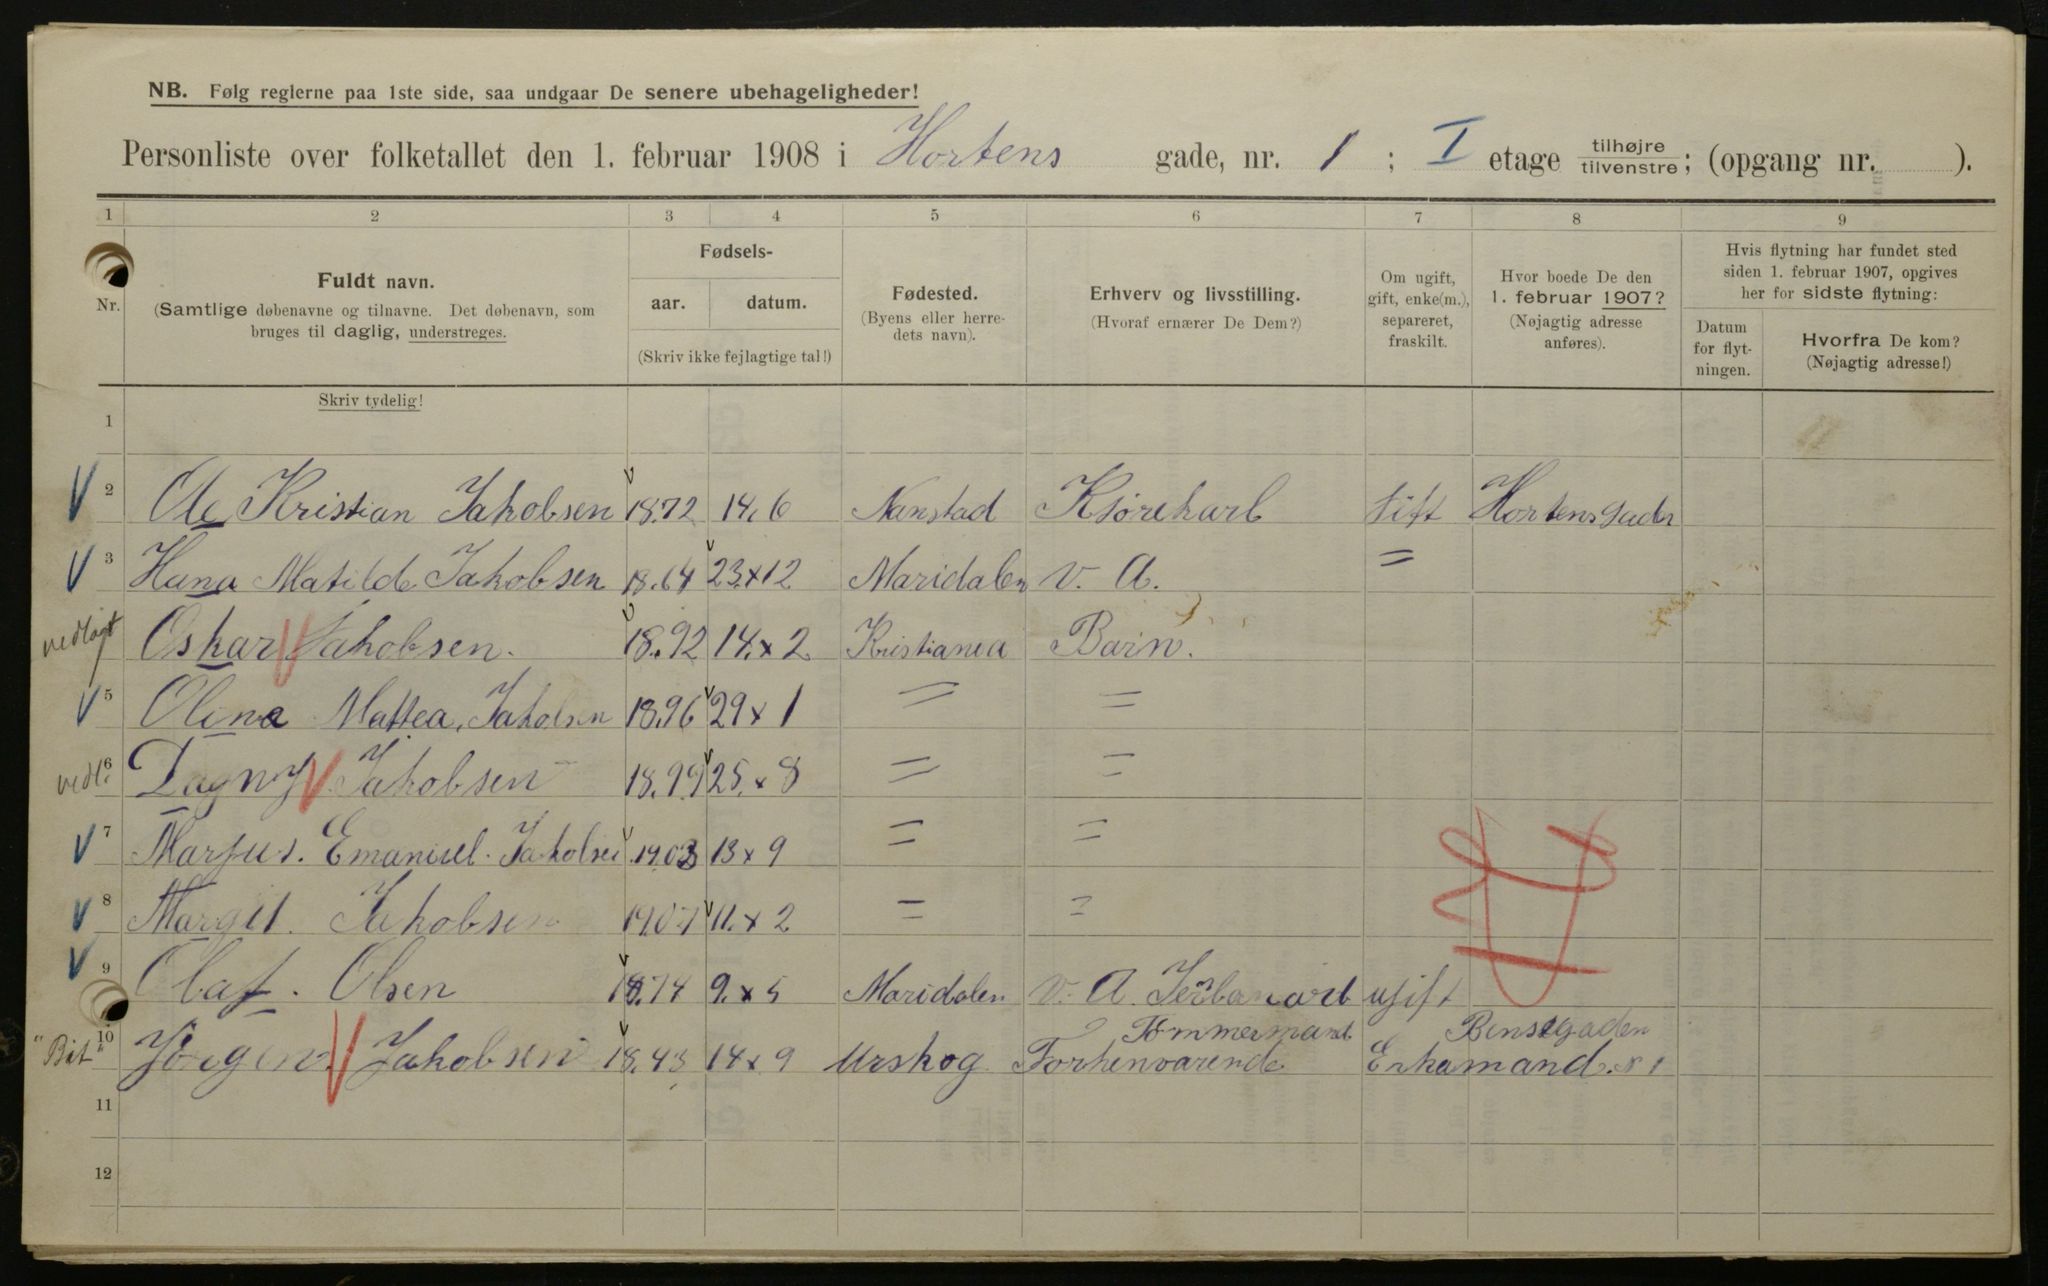 NB. Følg reglerne paa 1ste side, saa undgaar De senere ubehageligheder!
Personliste over folketallet den 1. februar 1908 i Hortens gade, nr. 1 ; I etage tilhøjre/tilvenstre; (opgang nr. ).
1 2 3 4 5 6 7 8 9
Nr.
Fuldt navn.
(Samtlige døbenavne og tilnavne. Det døbenavn, som
bruges til daglig, understreges.
Skriv tydelig!
Fødsels-
aar. datum.
(Skriv ikke fejlagtige tal!)
Fødested.
(Byens eller herre-
dets navn).
Erhverv og livsstilling.
(Hvoraf ernærer De Dem?)
Om ugift,
gift, enke(m.),
separeret,
fraskilt.
Hvor boede De den
1. februar 1907?
(Nøjagtig adresse
anføres).
Hvis flytning har fundet sted
siden 1. februar 1907, opgives
her for sidste flytning:
Datum
for flyt-
ningen.
Hvorfra De kom?
(Nøjagtig adresse!)
1
V 2 Ole Kristian Jakobsen 18.72 14.6 Nanstad Kjørekarl Gift Hortensgaden
V 3 Hana Matilde Jakobsen 18.64 23x12 Maridalen v. A. =
vedlagt Oskar V Jakobsen. 18.92 14.x2 Kristiania Barn.
V 5 Oline Mattea, Jakobsen 18.96 29x1 = =
vedl. 6 Dagny V Jakobsen 18.99 25.x8 = =
V 7 Marfus. Emanuel. Jakobsen 19.03 13x9 = =
V 8 Margit. Jakobsen 19.07 11.x2 = =
V 9 Olaf. Olsen 18.74 9.x5 Maridalen v. A. Jernbanearb ugift
Tømmermand Bensegaden
"Bit" 10 Jörgen V Jakobsen 18.43 14x9 Urskog Forhenvarende Enkamand. N 1
11
12